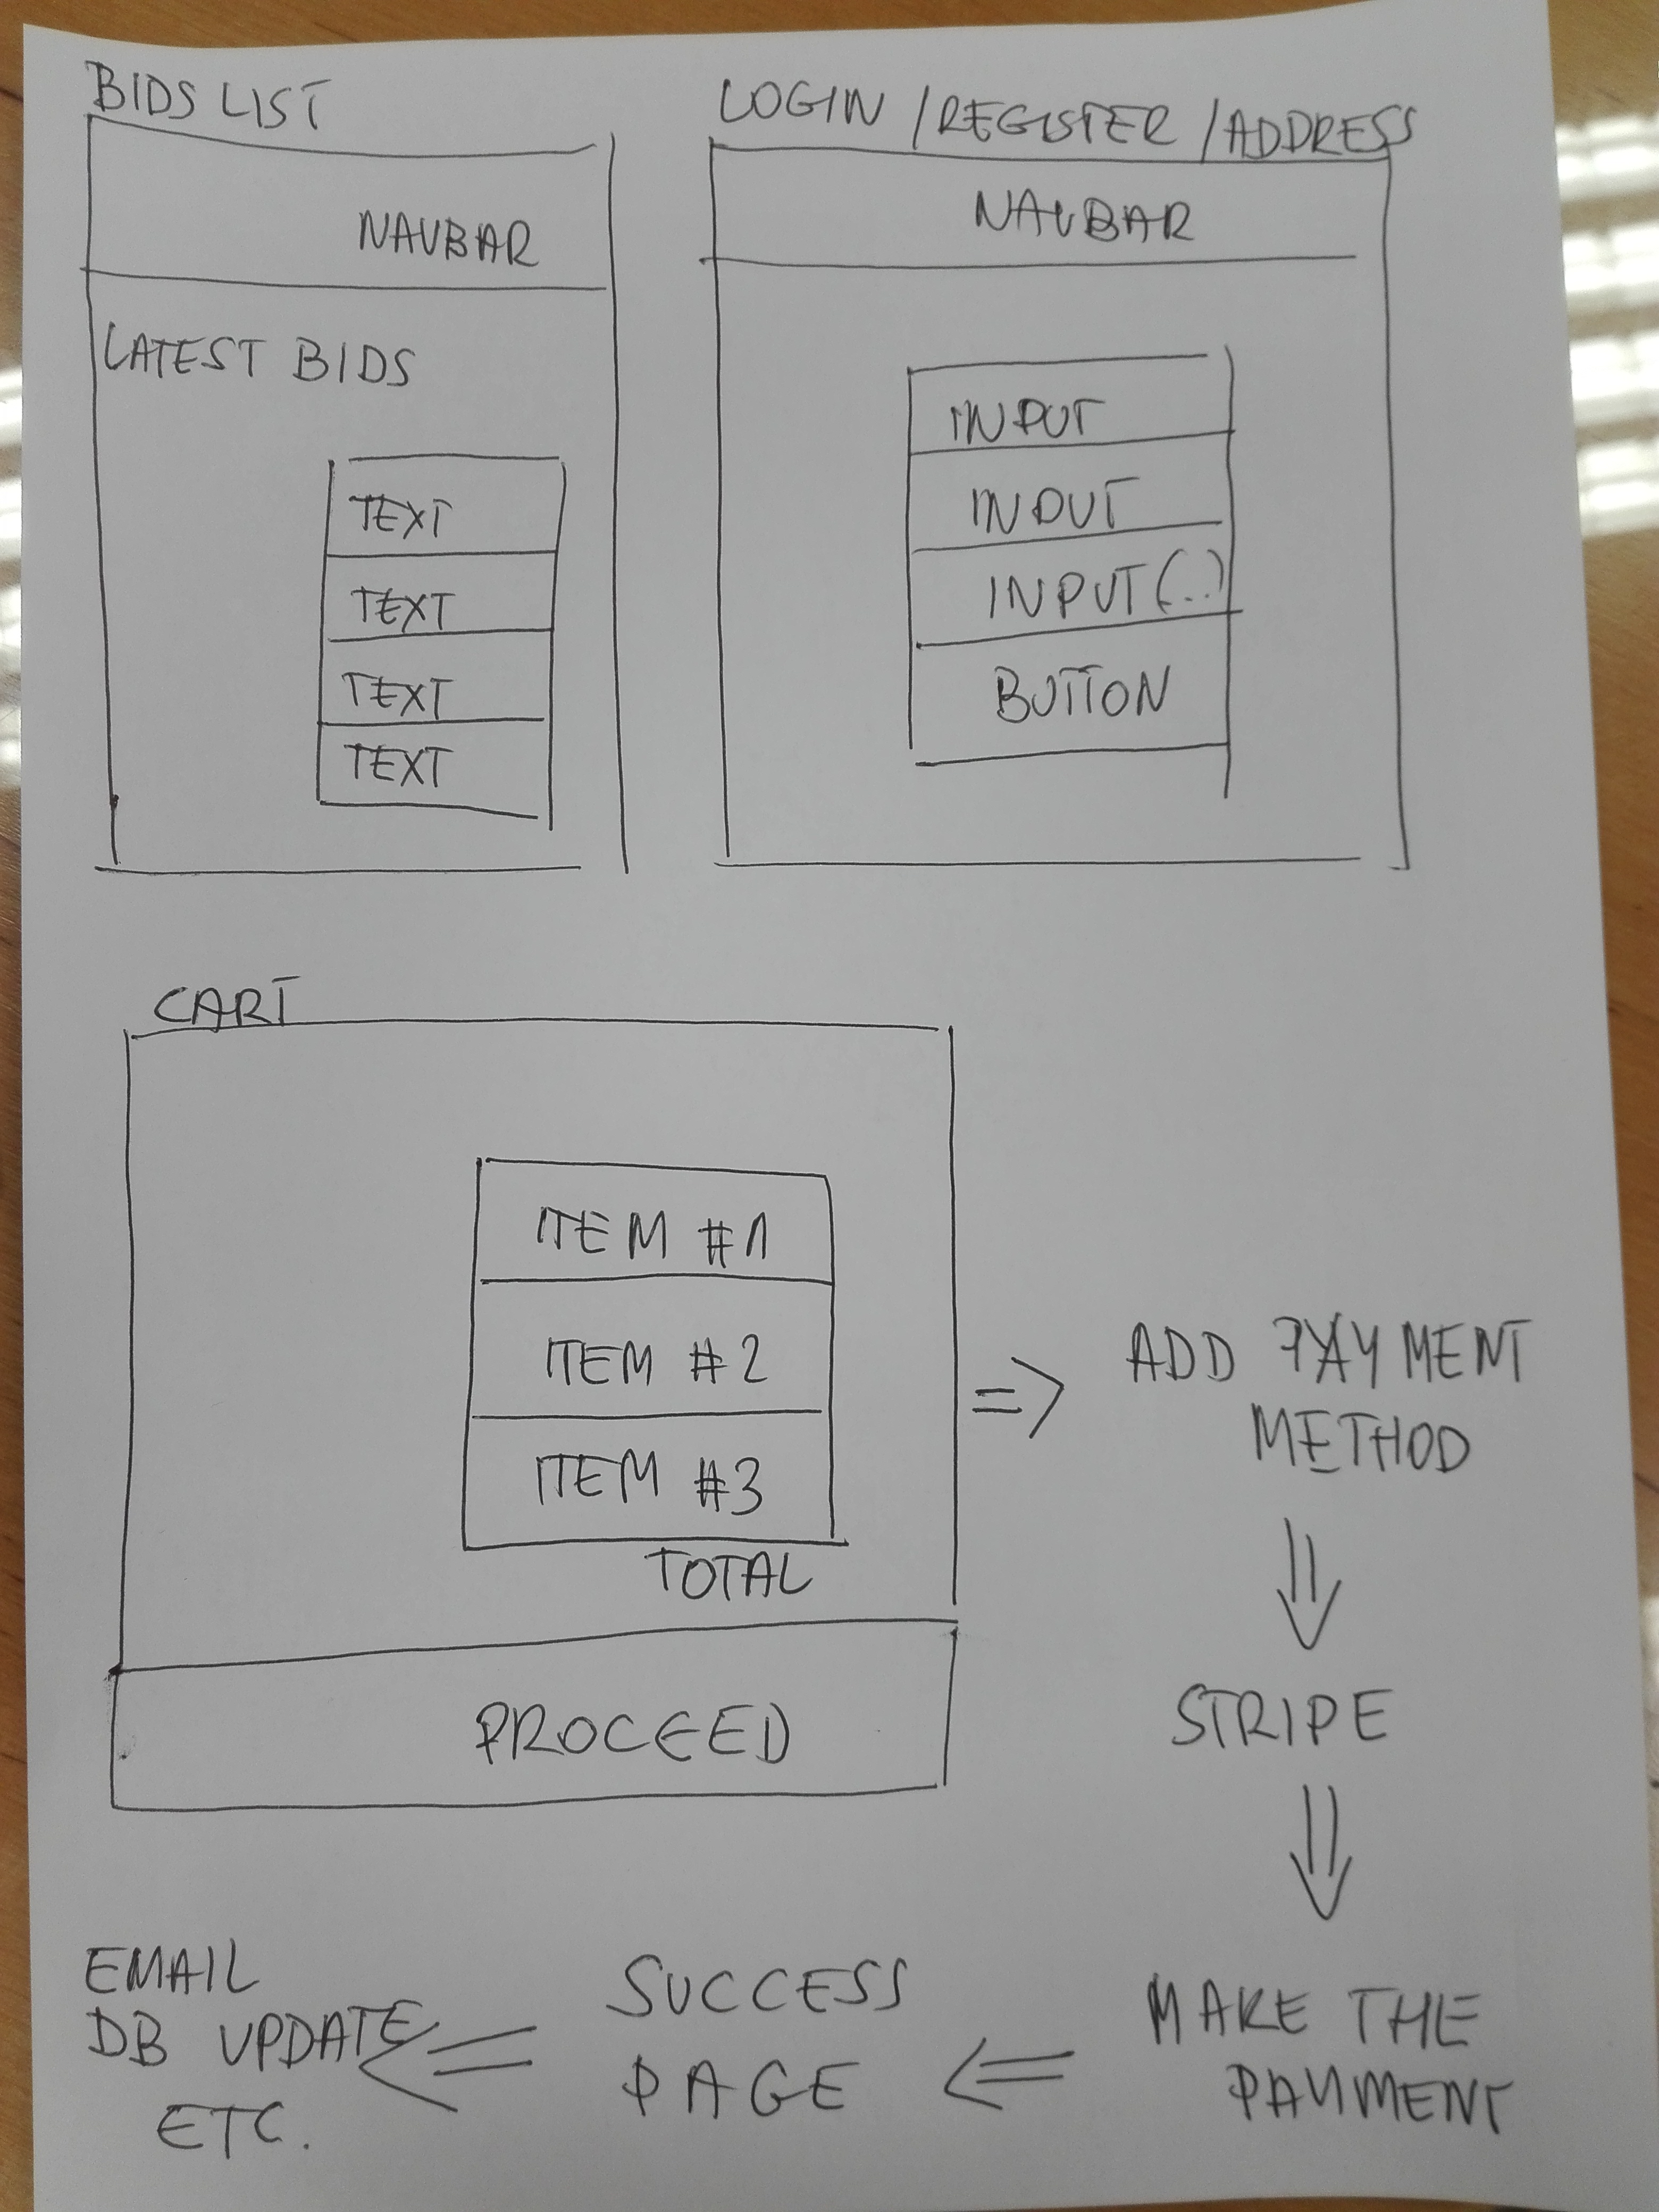 BIDS LIST
NAVBAR
LATEST BIDS
TEXT
TEXT
TEXT
TEXT
LOGIN / REGISTER / ADDRESS
NAVBAR
INPUT
INPUT
INPUT (..)
BUTTON
CART
ITEM #1
ITEM #2
ITEM #3
TOTAL
PROCEED
=> ADD PAYMENT
METHOD
STRIPE
MAKE THE
PAYMENT
<=
SUCCESS
PAGE
<=
EMAIL
DB UPDATE
ETC.